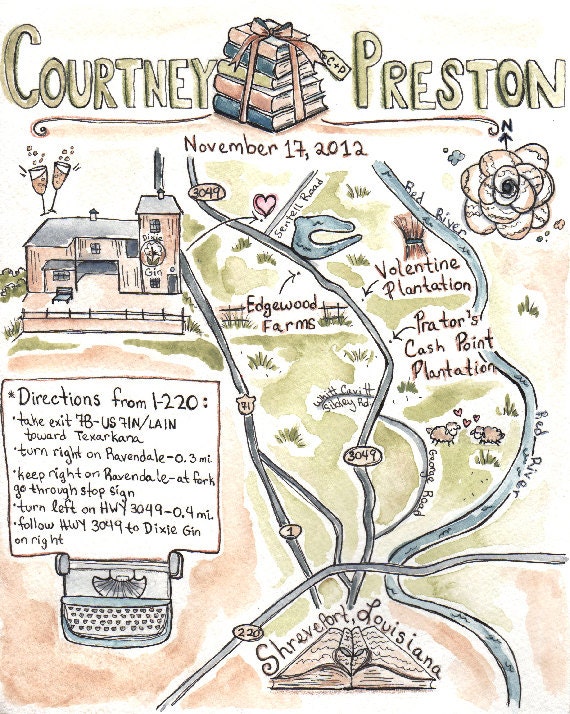 COURTNEY PRESTON
C+P
November 17, 2012
N
3049
Sentell Road
Red River
Dixie
Gin
Volentine
Plantation
Edgewood
Farms
Prator's
Cash Point
Plantation
*Directions from I-220:
•take exit 7B-US 71N/LA1N
toward Texarkana
•turn right on Ravendale-0.3 mi.
•keep right on Ravendale-at fork
go through stop sign
•turn left on HWY 3049-0.4 mi.
•follow HWY 3049 to Dixie Gin
on right
71
Whitt Cavitt
Sibley Rd.
3049
George Road
Red River
1
220
Shreveport, Louisiana